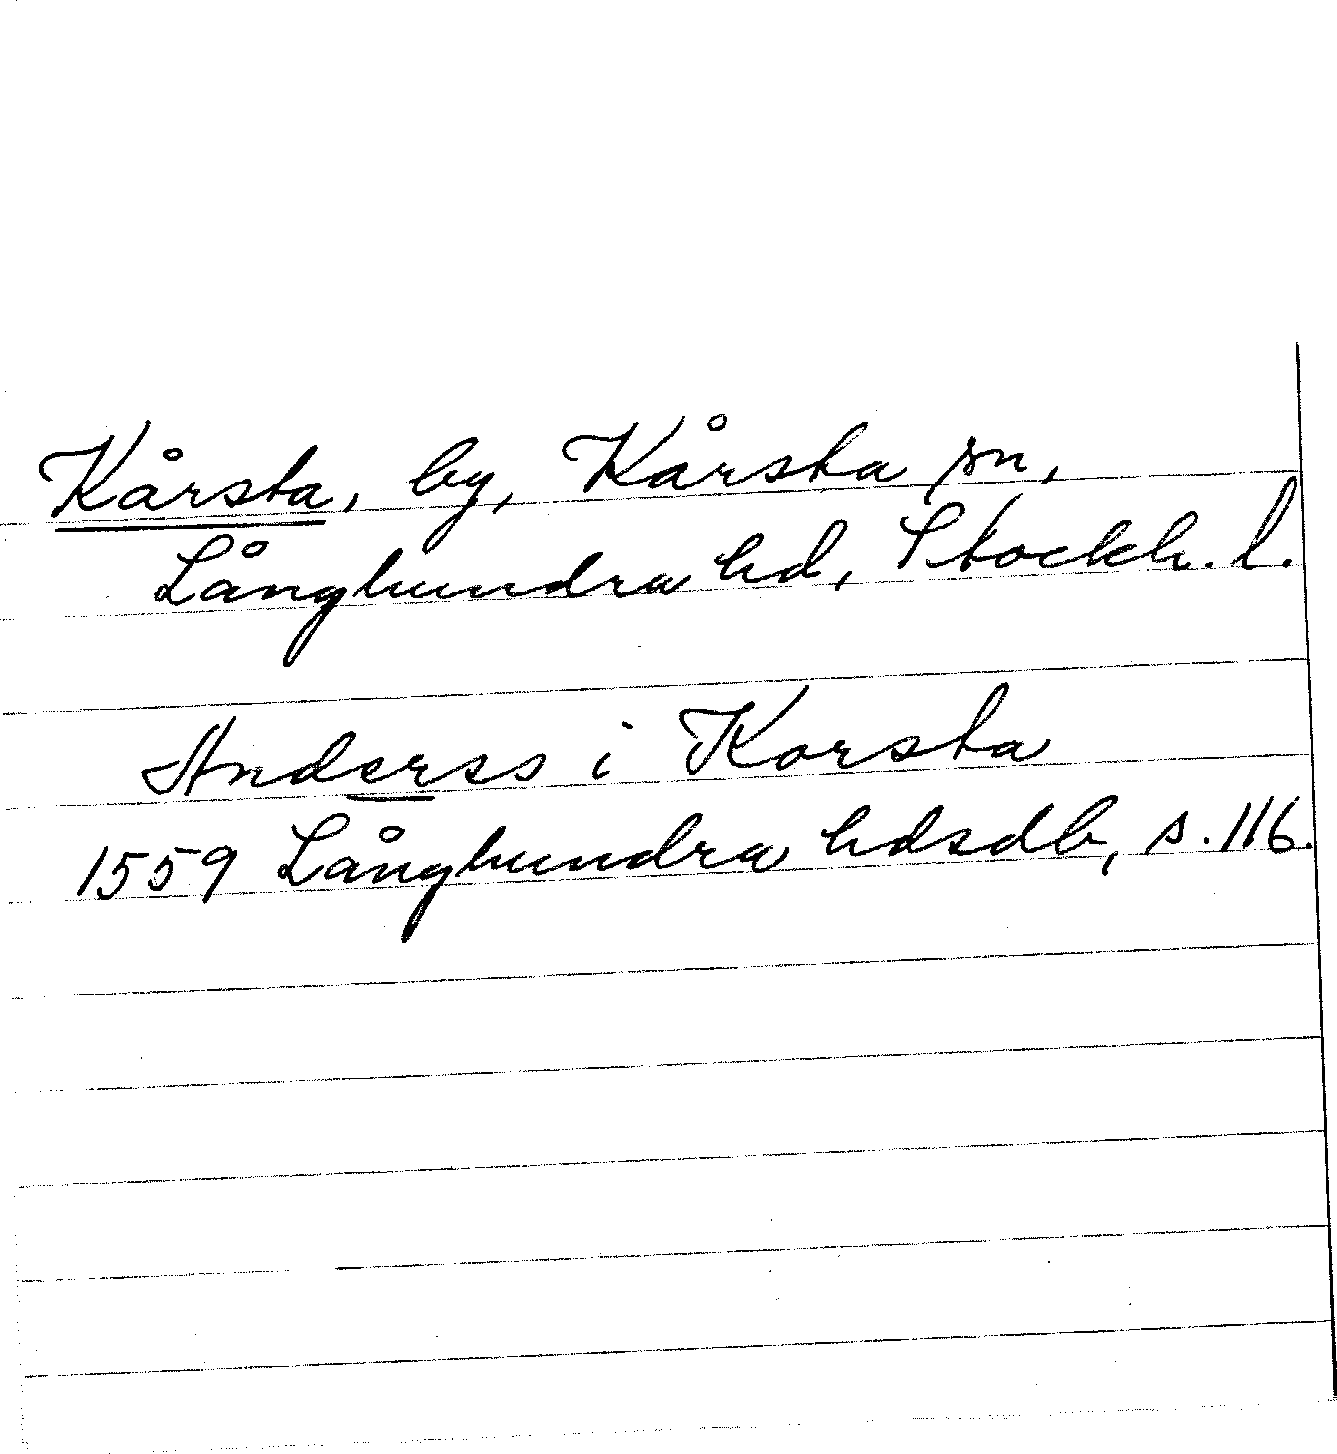 Kårsta, by, Kårsta sn,
Långhundra hd, Stockh. l.
Anderss i Korsta
1559 Långhundra hdsdb, s. 116.